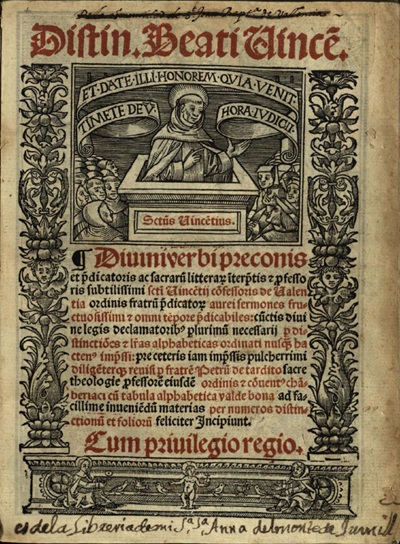 Distin. Beati Uincẽ.
ET·DATE·ILLI·HONOREM·QVIA·VENIT·
TIMETE DEV̄
HORA·IVDICII·
Sctūs Uincẽtius.
¶ Diuini verbi preconis
et p̄dicatoris ac sacrarū litterarꝝ īterp̄tis ⁊ ꝓfesso
ris subtilissimi sctī Uincẽtij cōfessoris de Ualen
tia ordinis fratrū p̄dicatorꝝ aurei sermones fru
ctuosissimi ⁊ omni tẽpore p̄dicabiles: cūctis diui
ne legis declamatoribꝰ plurimū necessarij ꝑ di
stinctiões ⁊ lr̄as alphabeticas ordinati nusꝗ̄ ha
ctenꝰ imp̄ssi: pre ceteris iam imp̄ssis pulcherrimi
diligẽterꝗꝫ reuisi ꝑ fratrẽ Petrū de tardito sacre
theologie ꝓfessorẽ eiusdẽ ordinis ⁊ cōuentꝰ chā
beriaci cū tabula alphabetica valde bona ad fa
cillime inueniẽdū materias per numeros distin
ctionū et foliorū feliciter Incipiunt.
Cum priuilegio regio.
es de la Libreria de mi Sᵃ. Sᵃ. Anna del monte de